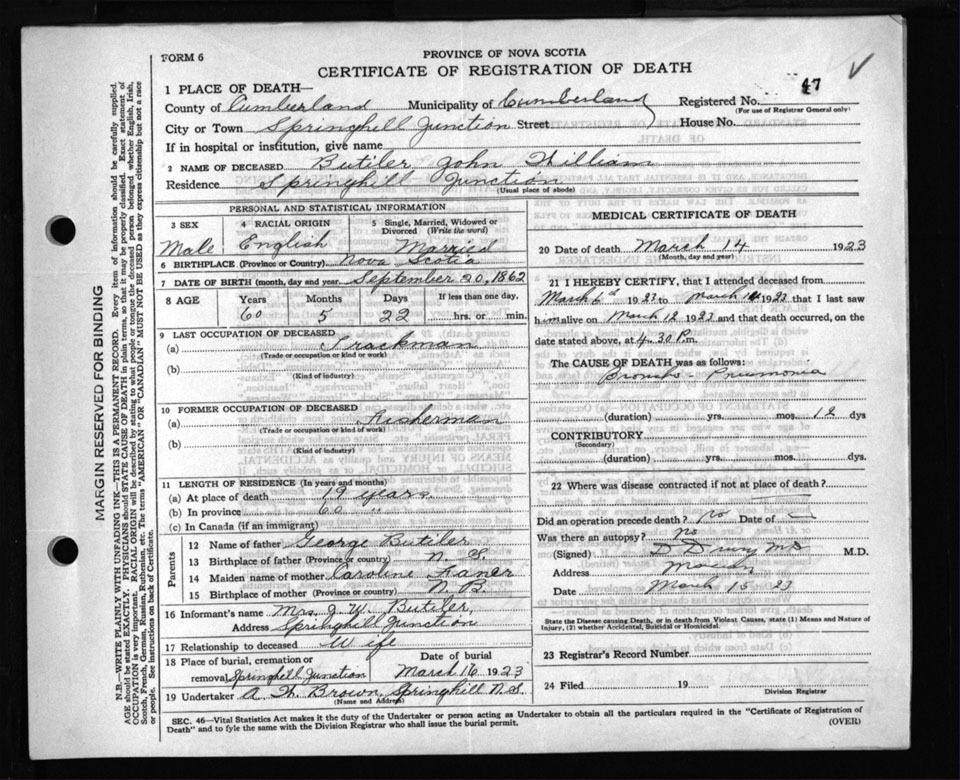 FORM 6
PROVINCE OF NOVA SCOTIA
CERTIFICATE OF REGISTRATION OF DEATH
47
1 PLACE OF DEATH—
County of Cumberland Municipality of Cumberland Registered No.
(For use of Registrar General only)
City or Town Springhill Junction Street House No.
If in hospital or institution, give name
2 NAME OF DECEASED Butiler John William
Residence Springhill Junction
(Usual place of abode)
PERSONAL AND STATISTICAL INFORMATION
3 SEX 4 RACIAL ORIGIN 5 Single, Married, Widowed or Divorced (Write the word)
Male English Married
6 BIRTHPLACE (Province or Country) Nova Scotia
7 DATE OF BIRTH (month, day and year) September 20, 1862
8 AGE Years Months Days If less than one day,
60 5 22 hrs. or min.
9 LAST OCCUPATION OF DECEASED
(a) Trackman
(Trade or occupation or kind or work)
(b)
(Kind of industry)
10 FORMER OCCUPATION OF DECEASED
(a) Fisherman
(Trade or occupation or kind of work)
(b)
(Kind of industry)
11 LENGTH OF RESIDENCE (In years and months)
(a) At place of death 19 years
(b) In province 60 "
(c) In Canada (if an immigrant)
Parents
12 Name of father George Butiler
13 Birthplace of father (Province or country) N. S.
14 Maiden name of mother Caroline
15 Birthplace of mother (Province or country) N. B.
16 Informant's name Mrs. J. W. Butiler,
Address Springhill Junction
17 Relationship to deceased Wife
18 Place of burial, cremation or removal Springhill Junction Date of burial March 16 1923
19 Undertaker A. Brown, Springhill N.S.
(Name and Address)
MEDICAL CERTIFICATE OF DEATH
20 Date of death March 14 1923
(Month, day and year)
21 I HEREBY CERTIFY, that I attended deceased from
March 6th 1923 to March 14 1923 that I last saw
him alive on March 12 1923 and that death occurred, on the
date stated above, at 4.30 P.m.
The CAUSE OF DEATH was as follows:
Broncho-Pneumonia
(duration) yrs. mos. 12 dys
CONTRIBUTORY
(Secondary)
(duration) yrs. mos. dys
22 Where was disease contracted if not at place of death?
Did an operation precede death? no Date of —
Was there an autopsy? no
(Signed) D Drury MD M.D.
Address
Date March 15 23
State the Disease causing Death, or in death from Violent Causes, state (1) Means and Nature of Injury, (2) whether Accidental, Suicidal or Homicidal.
23 Registrar's Record Number
24 Filed 19
Division Registrar
SEC. 46—Vital Statistics Act makes it the duty of the Undertaker or person acting as Undertaker to obtain all the particulars required in the "Certificate of Registration of
Death" and to fyle the same with the Division Registrar who shall issue the burial permit. (OVER)
MARGIN RESERVED FOR BINDING
N.B.—WRITE PLAINLY WITH UNFADING INK—THIS IS A PERMANENT RECORD. Every item of information should be carefully supplied.
AGE should be stated EXACTLY. PHYSICIANS should STATE CAUSE OF DEATH in plain terms, so that it may be properly classified. Exact statement of
OCCUPATION is very important. RACIAL ORIGIN will be described by stating to what people or tongue the deceased person belonged whether English, Irish,
Scotch, French, German, Russian, Ruthenian, etc. The terms "AMERICAN" OR "CANADIAN" MUST NOT BE USED as they express citizenship but not a race
or people. See instructions on back of Certificate.